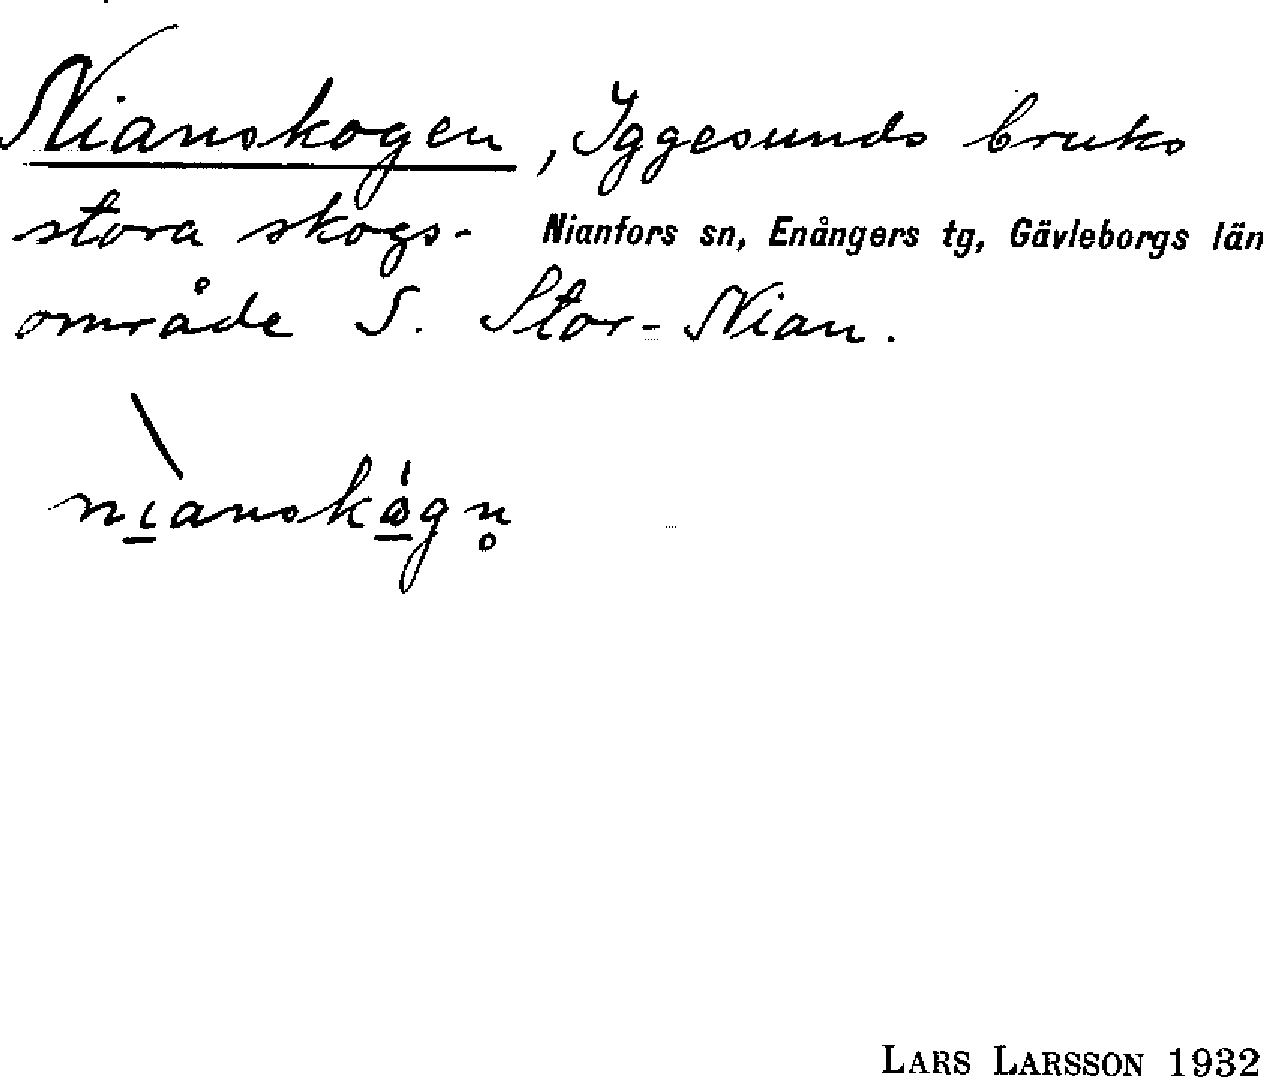 Nianskogen, Iggesunds bruks
stora skogs-
Nianfors sn, Enångers tg, Gävleborgs län
område S. Stor-Nian.
nianskågn̥
LARS LARSSON 1932